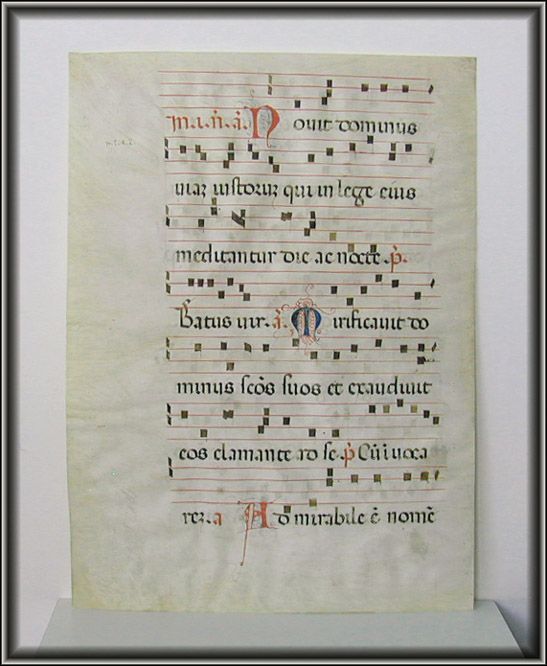 m. i. n̄. ā. Novit dominus
viaz iustoruz qui in lege eius
meditantur die ac nocte. p̄.
Batus vir. ā. Mirificavit do
minus scōs suos et exaudivit
eos clamante ad se. p̄ Cū ivoca
rez. a Admirabile ē nomē